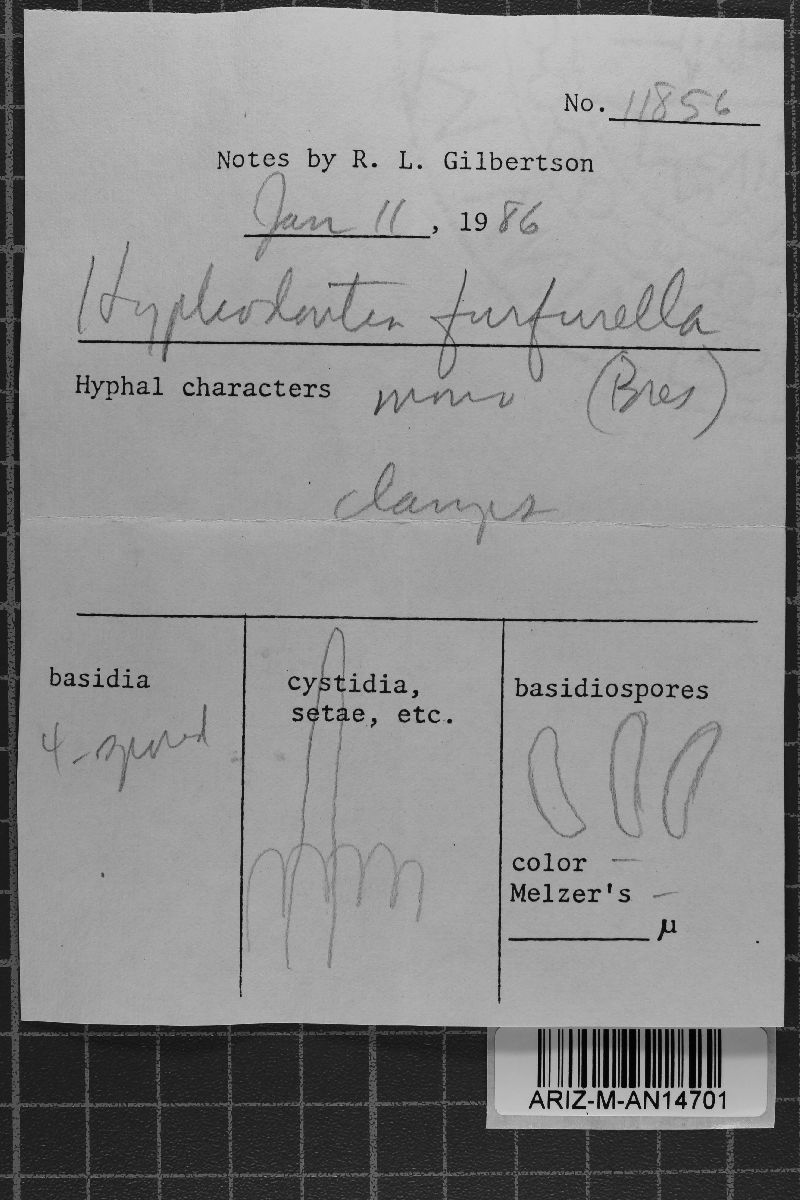 No. 11856
Notes by R. L. Gilbertson
Jan 11, 1986
Hyphodontia furfurella
Hyphal characters mono (Bres)
clamps
basidia
4-spored
cystidia,
setae, etc.
basidiospores
color —
Melzer's —
µ
ARIZ-M-AN14701